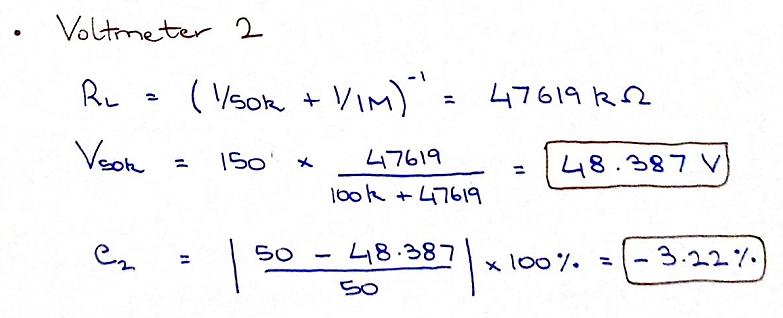 • Voltmeter 2
R_L = (1/50k + 1/1M)^-1 = 47619 kΩ
V_50k = 150 × 47619 / (100k + 47619) = 48.387 V
e_2 = | (50 - 48.387) / 50 | × 100% = - 3.22%